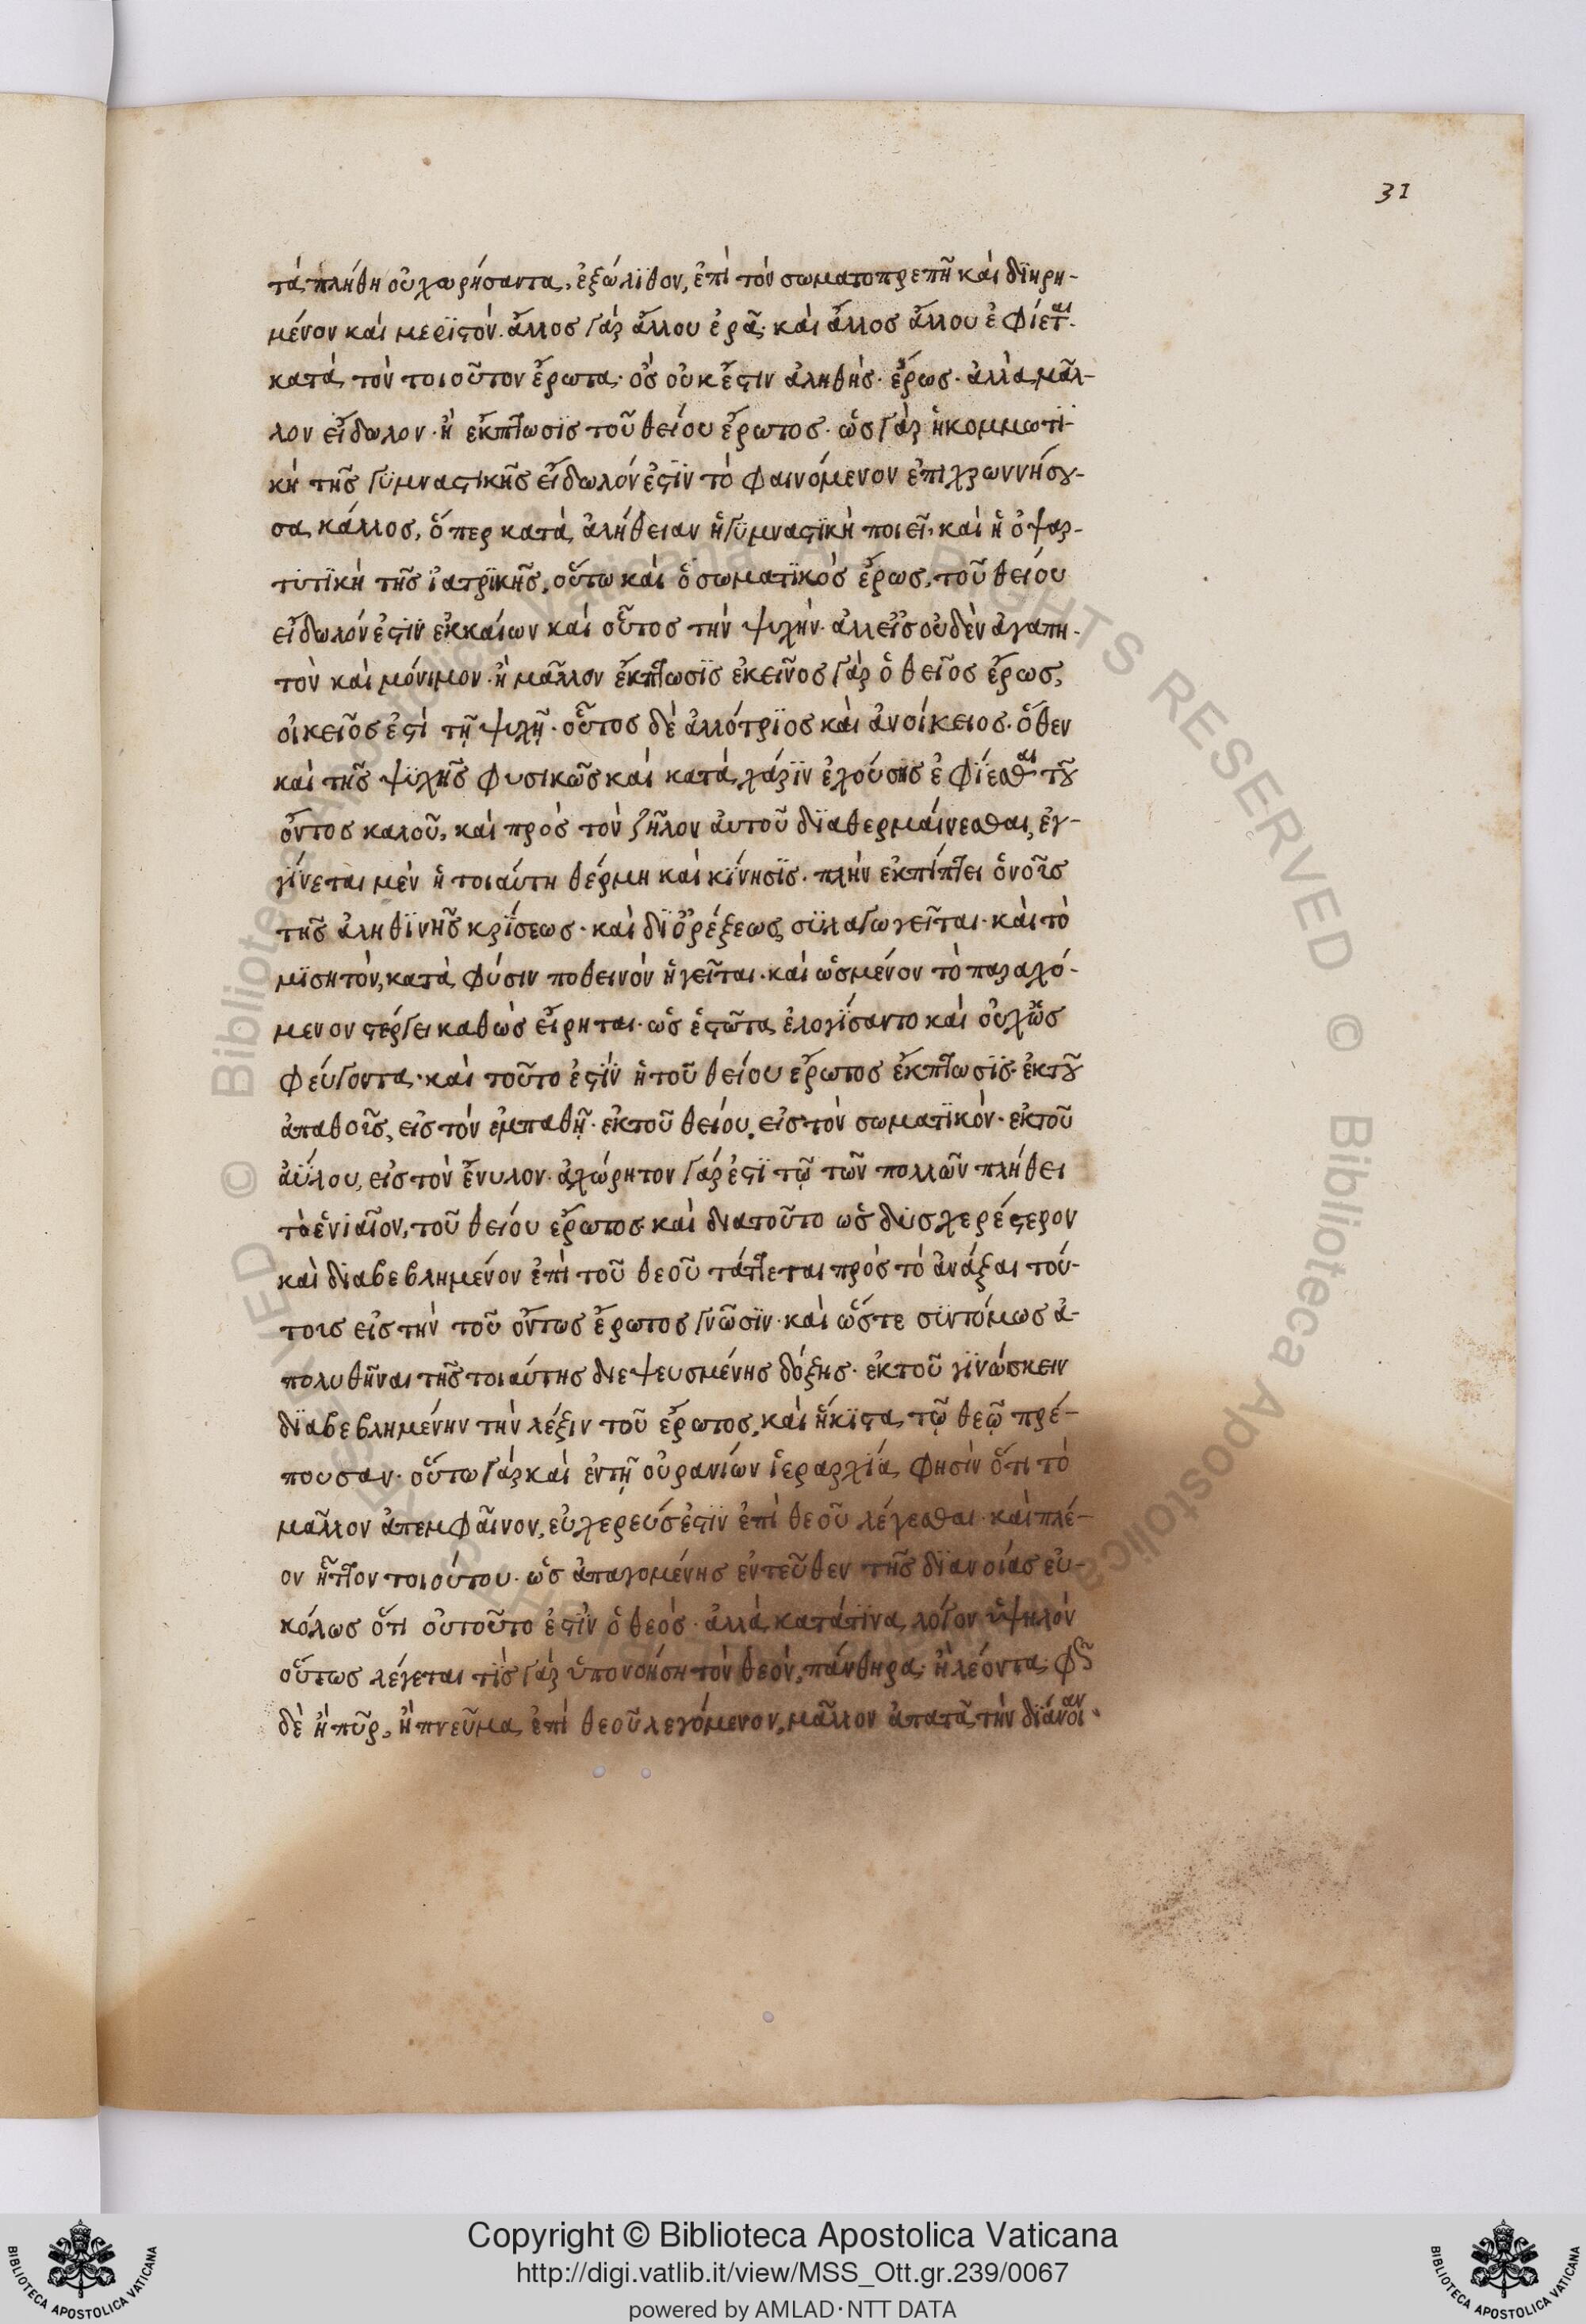 31
τὰ πλήθη οὐ χωρήσαντα, ἐξώλϊθον, ἐπὶ τὸν σωματοπρεπῆ καὶ διῃρη-
μένον καὶ μεριστόν. ἄλλος γὰρ ἄλλου ἐρᾷ· καὶ ἄλλος ἄλλου ἐφίεται.
κατὰ τὸν τοιοῦτον ἔρωτα· ὃς οὐκ ἔστιν ἀληθὴς ἔρως· ἀλλὰ μᾶλ-
λον εἴδωλον· ἢ ἔκπτωσις τοῦ θείου ἔρωτος· ὡς γὰρ ἡ κομμωτι-
κὴ τῆς γυμναστικῆς εἴδωλόν ἐστιν τὸ φαινόμενον ἐπιχρωννήσου-
σα κάλλος, ὅπερ κατὰ ἀλήθειαν ἡ γυμναστικὴ ποιεῖ, καὶ ἡ ὀψαρ-
τυτικὴ τῆς ἰατρικῆς, οὕτω καὶ ὁ σωματικὸς ἔρως, τοῦ θείου
εἴδωλόν ἐστιν ἐκκαίων καὶ οὗτος τὴν ψυχήν· ἀλλ εἰς οὐδὲν ἀγαπη-
τὸν καὶ μόνιμον· ἢ μᾶλλον ἔκπτωσις ἐκεῖνος γὰρ ὁ θεῖος ἔρως,
οἰκεῖος ἐστὶ τῇ ψυχῇ· οὗτος δὲ ἀλλότριος καὶ ἀνοίκειος· ὅθεν
καὶ τῆς ψυχῆς φυσικῶς καὶ κατὰ χάριν ἐχούσης ἐφίεσθαι τοῦ
ὄντος καλοῦ, καὶ πρὸς τὸν ζῆλον αὐτοῦ διαθερμαίνεσθαι, ἐγ-
γίνεται μὲν ἡ τοιαύτη θέρμη καὶ κίνησις· πλὴν ἐκπίπτει ὁ νοῦς
τῆς ἀληθινῆς κρίσεως· καὶ δι ὀρέξεως συλαγωγεῖται· καὶ τὸ
μισητὸν, κατὰ φύσιν ποθεινὸν ἡγεῖται· καὶ ὡς μένον τὸ παραχό-
μενον στέργει καθὼς εἴρηται· ὡς ἑστῶτα ἐλογίσαντο καὶ οὐχ ὡς
φεύγοντα· καὶ τοῦτο ἐστὶν ἡ τοῦ θείου ἔρωτος ἔκπτωσις· ἐκ τοῦ
ἀπαθοῦς, εἰς τὸν ἐμπαθῆ· ἐκ τοῦ θείου, εἰς τὸν σωματικόν· ἐκ τοῦ
ἀΰλου, εἰς τὸν ἔνυλον· ἀχώρητον γὰρ ἐστὶ τῷ τῶν πολλῶν πλήθει
τὸ ἑνιαῖον, τοῦ θείου ἔρωτος καὶ διατοῦτο ὡς δυσχερέστερον
καὶ διαβεβλημένον ἐπὶ τοῦ θεοῦ τάττεται πρὸς τὸ ἀνάξαι τού-
τοις εἰς τὴν τοῦ ὄντως ἔρωτος γνῶσιν· καὶ ὥστε συντόμως ἀ-
πολυθῆναι τῆς τοιαύτης διεψευσμένης δόξης· ἐκ τοῦ γινώσκειν
διαβεβλημένην τὴν λέξιν τοῦ ἔρωτος, καὶ ἥκιστα τῷ θεῷ πρέ-
πουσαν· οὕτω γὰρ καὶ ἐν τῇ οὐρανίων ἱεραρχίᾳ φησὶν ὅτι τὸ
μᾶλλον ἀπεμφαῖνον, εὐχερεύς ἐστιν ἐπὶ θεοῦ λέγεσθαι· καὶ πλέ-
ον ἧττον τοιούτου· ὡς ἀπαγομένης ἐντεῦθεν τῆς διανοίας εὐ-
κόλως ὅτι οὐ τοῦτο ἐστὶν ὁ θεός· ἀλλὰ κατά τινα λόγον ὑψηλὸν
οὕτως λέγεται τίς γὰρ ὑπονοήσῃ τὸν θεὸν, πάνθηρα, ἢ λέοντα, φῶς
δὲ ἢ πῦρ, ἢ πνεῦμα ἐπὶ θεοῦ λεγόμενον, μᾶλλον ἀπατᾷ τὴν διάνοιαν.
Copyright © Biblioteca Apostolica Vaticana
http://digi.vatlib.it/view/MSS_Ott.gr.239/0067
powered by AMLAD·NTT DATA